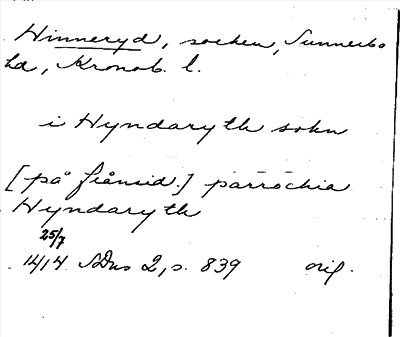 Hinneryd, socken, Sunnerbo
hd, Kronob. l.
i Hyndaryth sokn
[på fiånsid.] parrochia
Hyndaryth
25/7
1414 SDns 2, s. 839 orig.